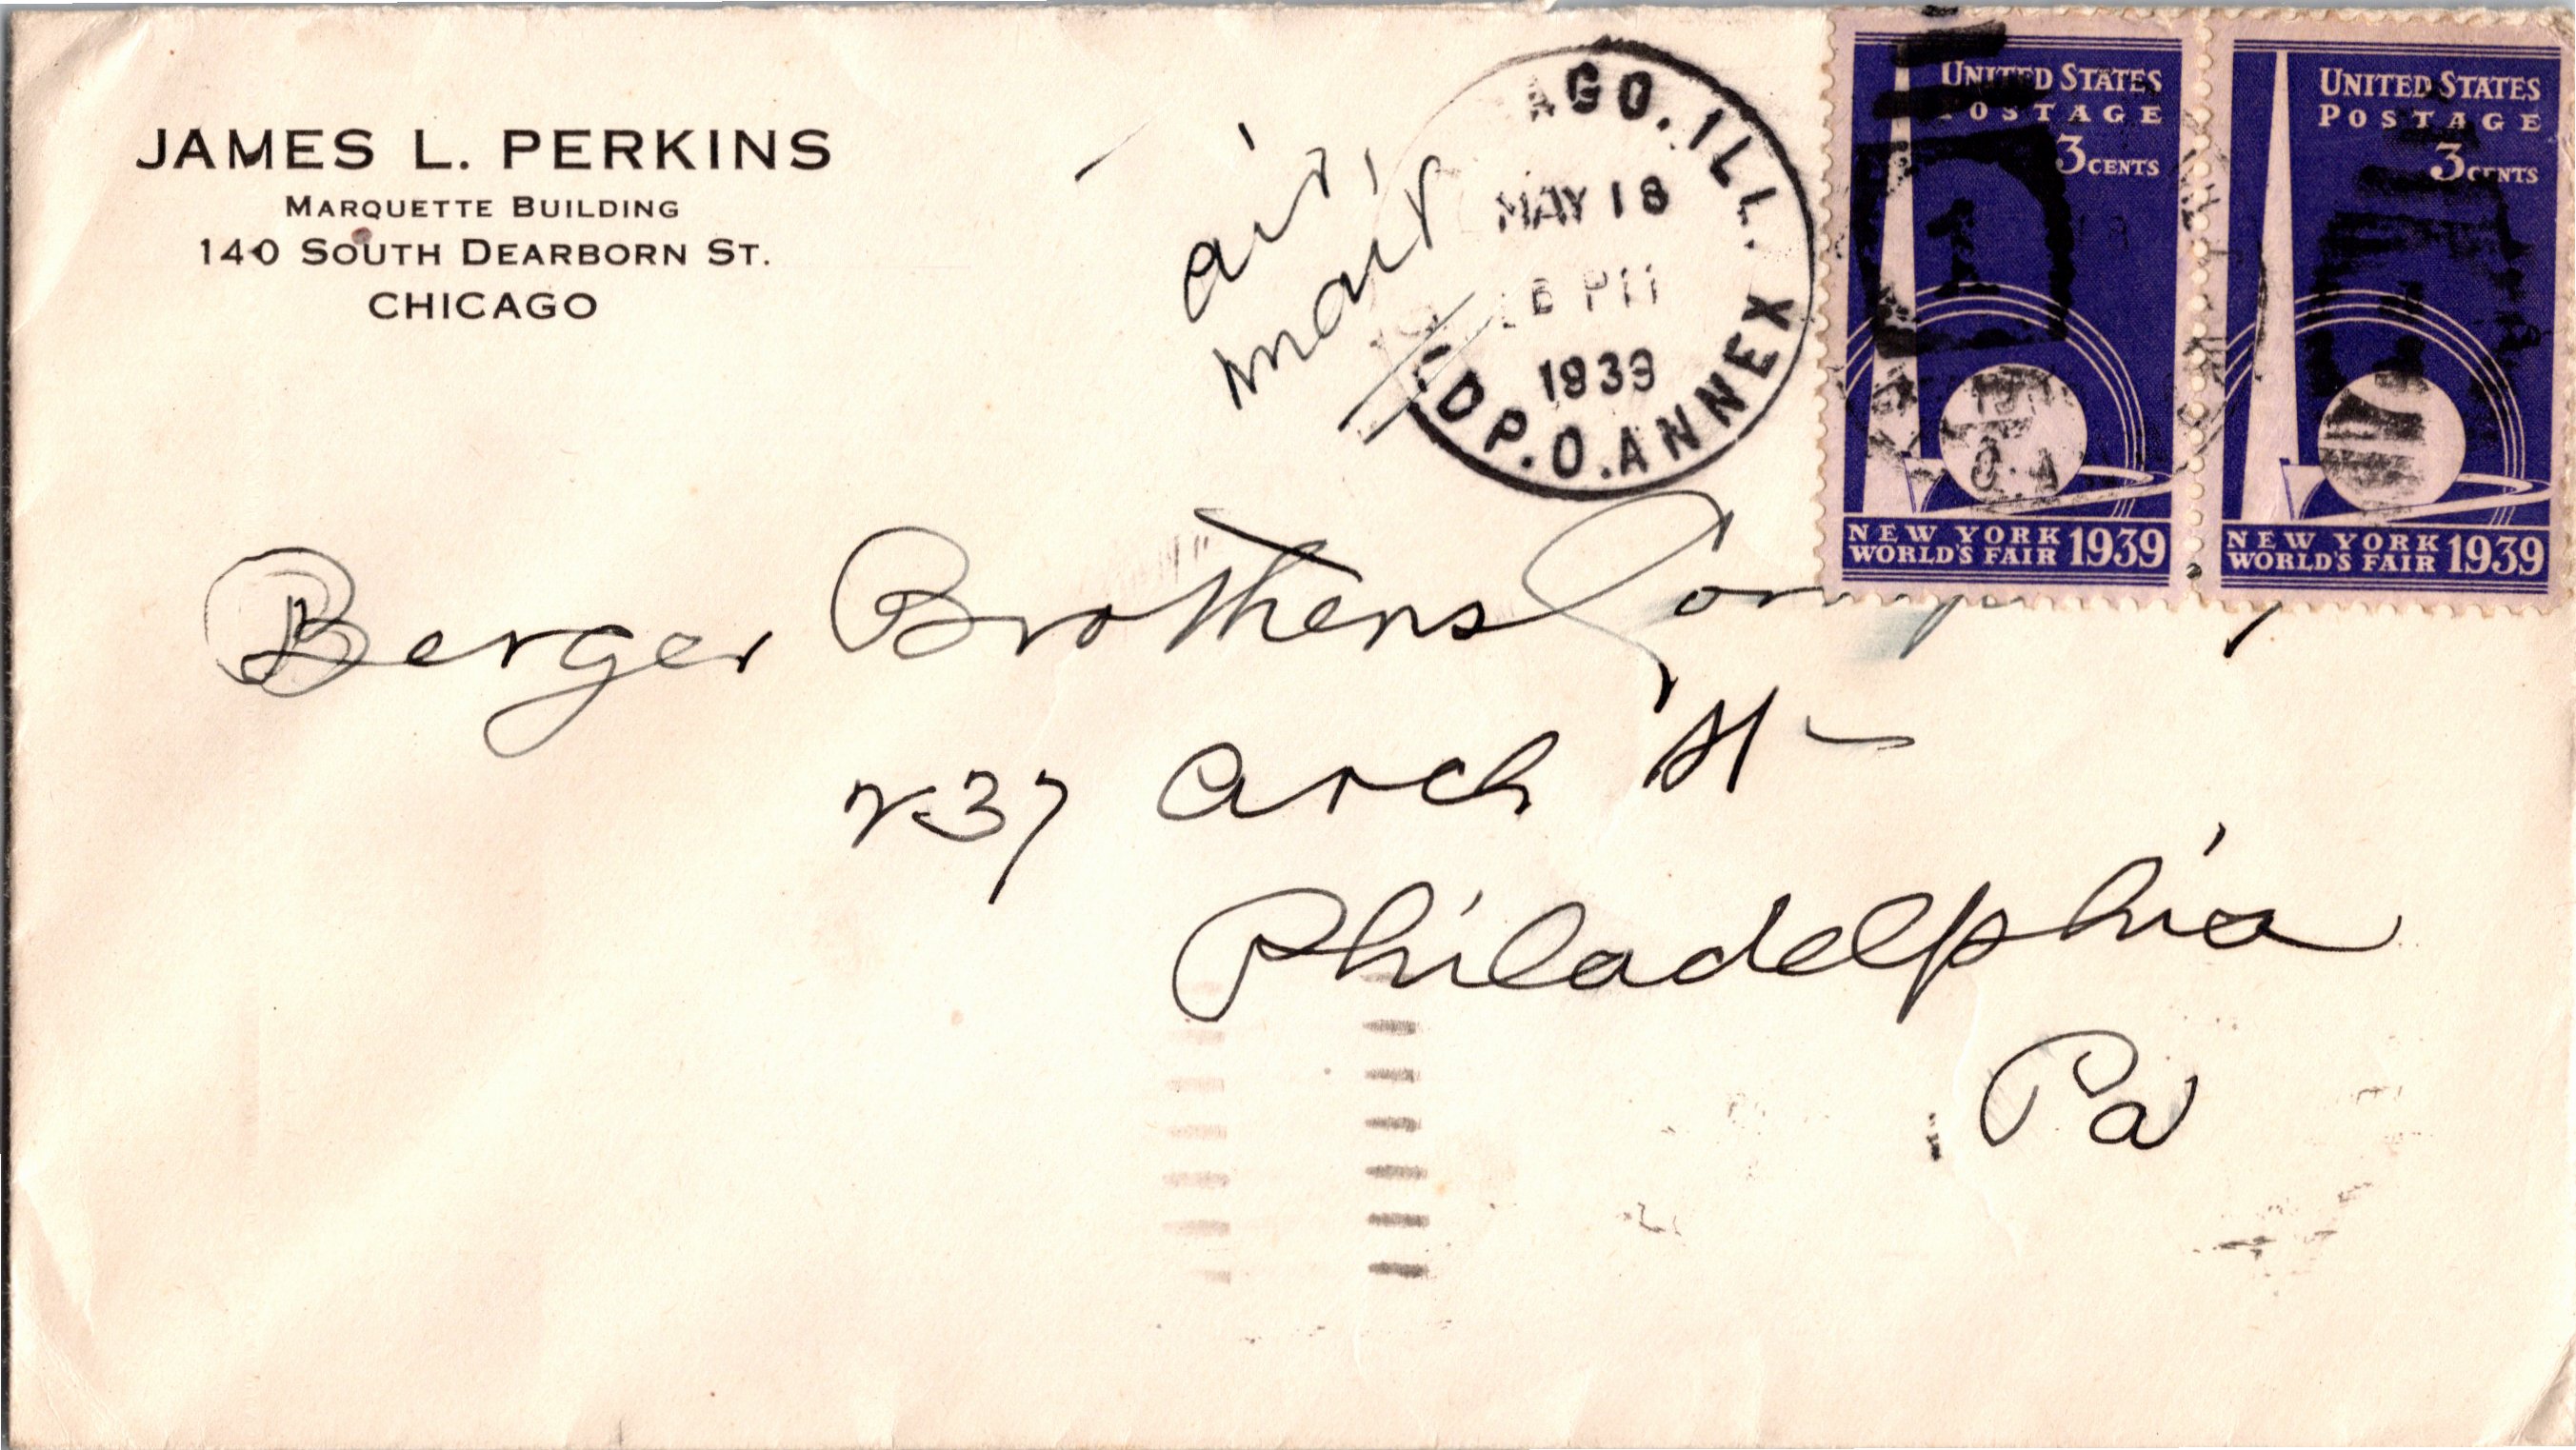 JAMES L. PERKINS
MARQUETTE BUILDING
140 SOUTH DEARBORN ST.
CHICAGO
air
mail
AGO, ILL.
MAY 18
1939
P.O. ANNEX
UNITED STATES
POSTAGE
3 CENTS
NEW YORK
WORLD'S FAIR 1939
UNITED STATES
POSTAGE
3 CENTS
NEW YORK
WORLD'S FAIR 1939
Berger Brothers
237 Arch St
Philadelphia
Pa